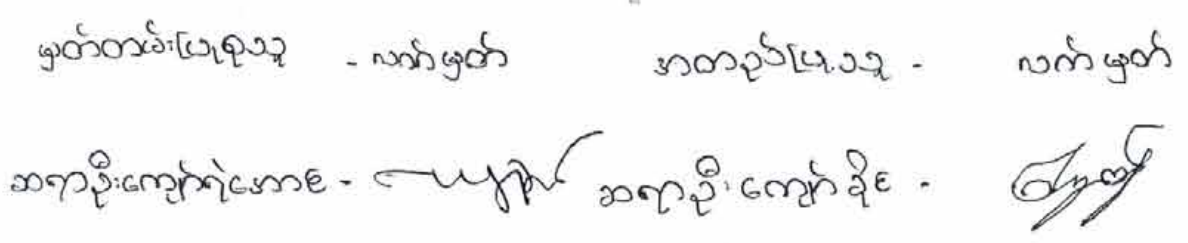 မှတ်တမ်းပြုစုသူ - လက်မှတ် အတည်ပြုသူ - လက်မှတ်
ဆရာဦးကျော်ရဲအောင် - ဆရာဦးကျော်ခိုင် -